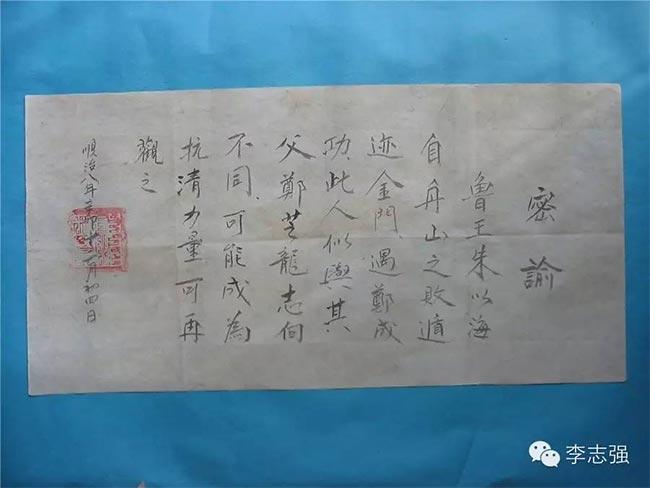 密諭
魯王朱以海
自舟山之敗遁
迹金門遇鄭成
功此人似與其
父鄭芝龍志向
不同可能成為
抗清力量可再
觀之
順治八年辛卯十二月初四日
李志强